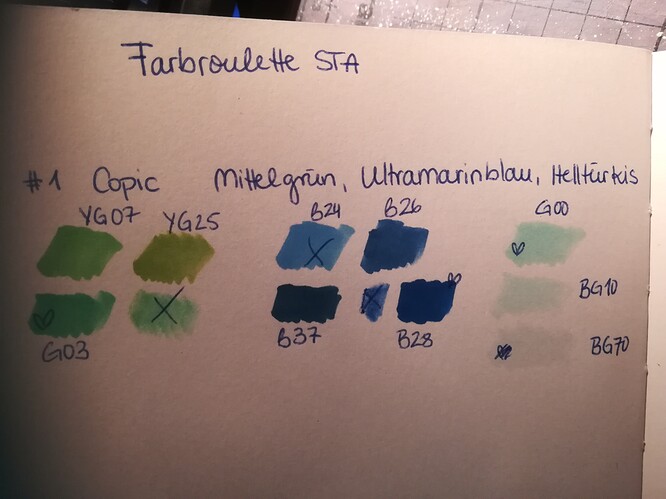 Farbroulette STA
#1 Copic Mittelgrün, Ultramarinblau, Helltürkis
YG07 YG25 B24 B26 G00
BG10
G03 B37 B28 BG70